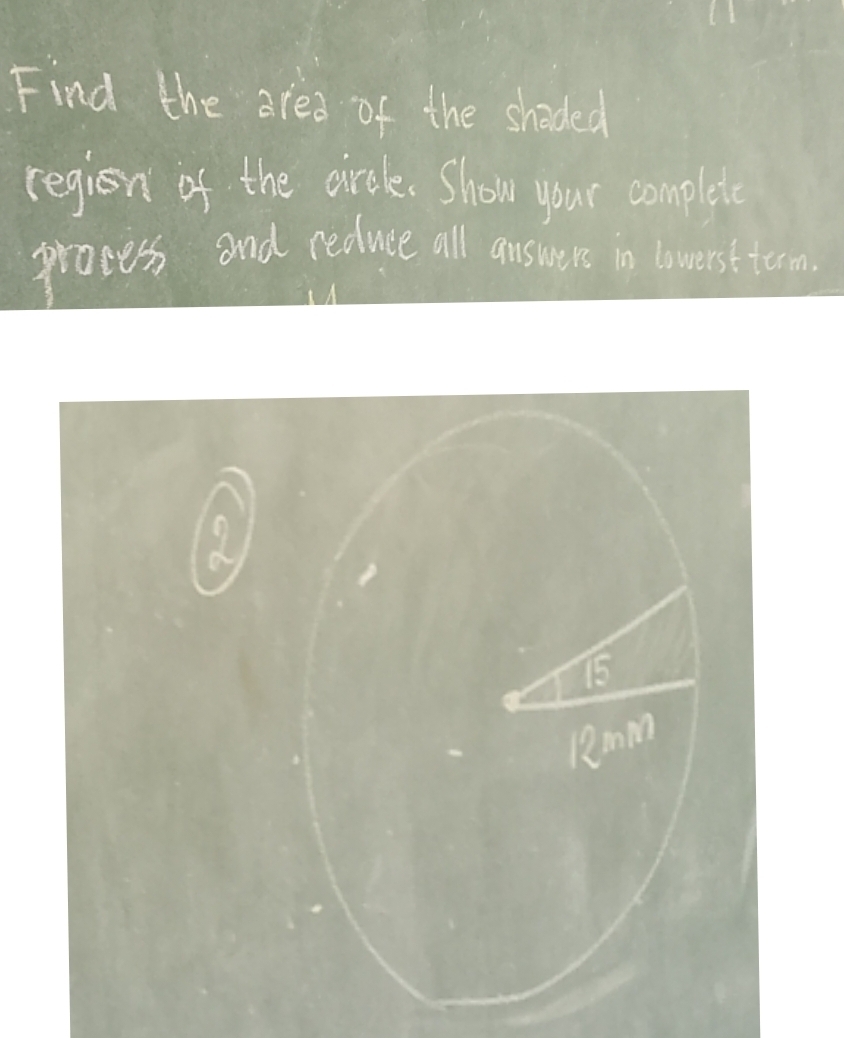 Find the area of the shaded
region of the circle. Show your complete
process and reduce all answers in lowerst term.
2
15
12mm